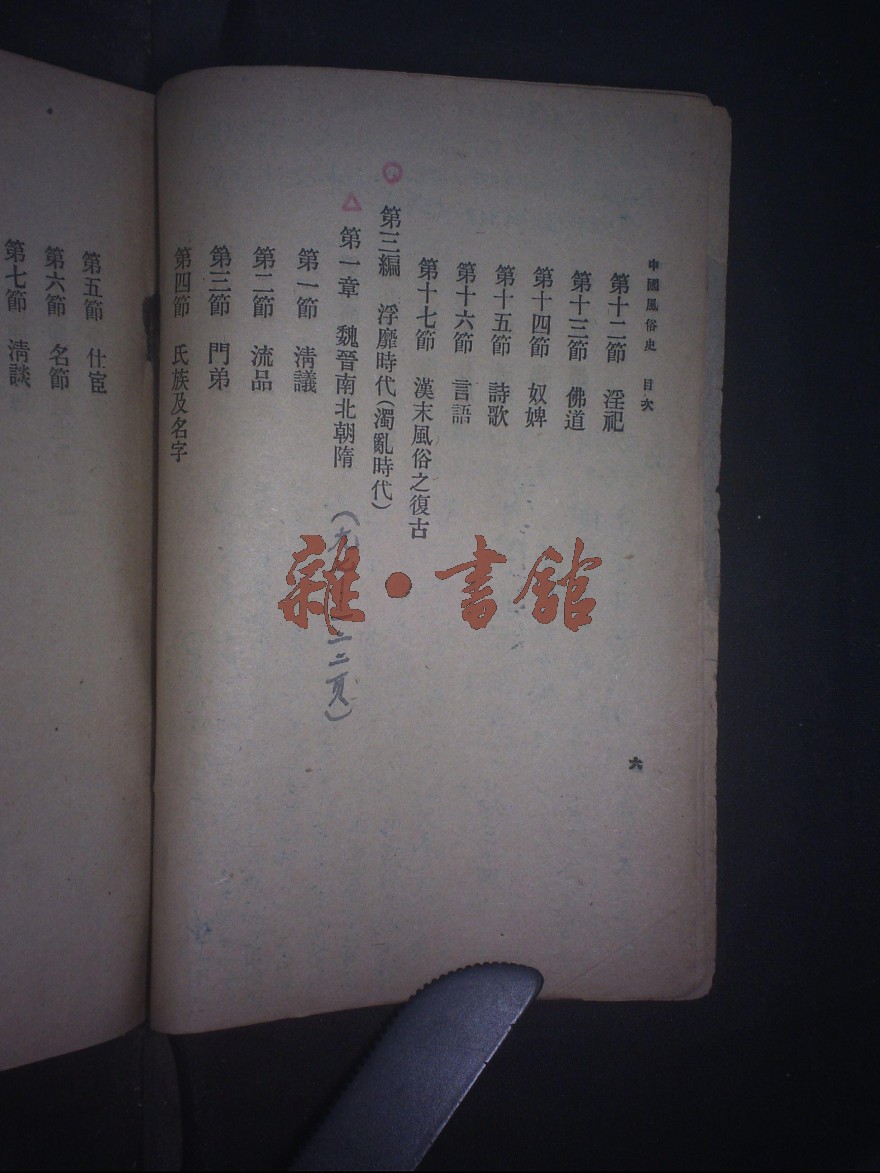 中國風俗史　目次
第十二節　淫祀
第十三節　佛道
第十四節　奴婢
第十五節　詩歌
第十六節　言語
第十七節　漢末風俗之復古
第三編　浮靡時代(濁亂時代)
第一章　魏晉南北朝隋
二二頁)
第一節　淸議
第二節　流品
第三節　門弟
第四節　氏族及名字
六
第五節　仕宦
第六節　名節
第七節　淸談
雜·書館